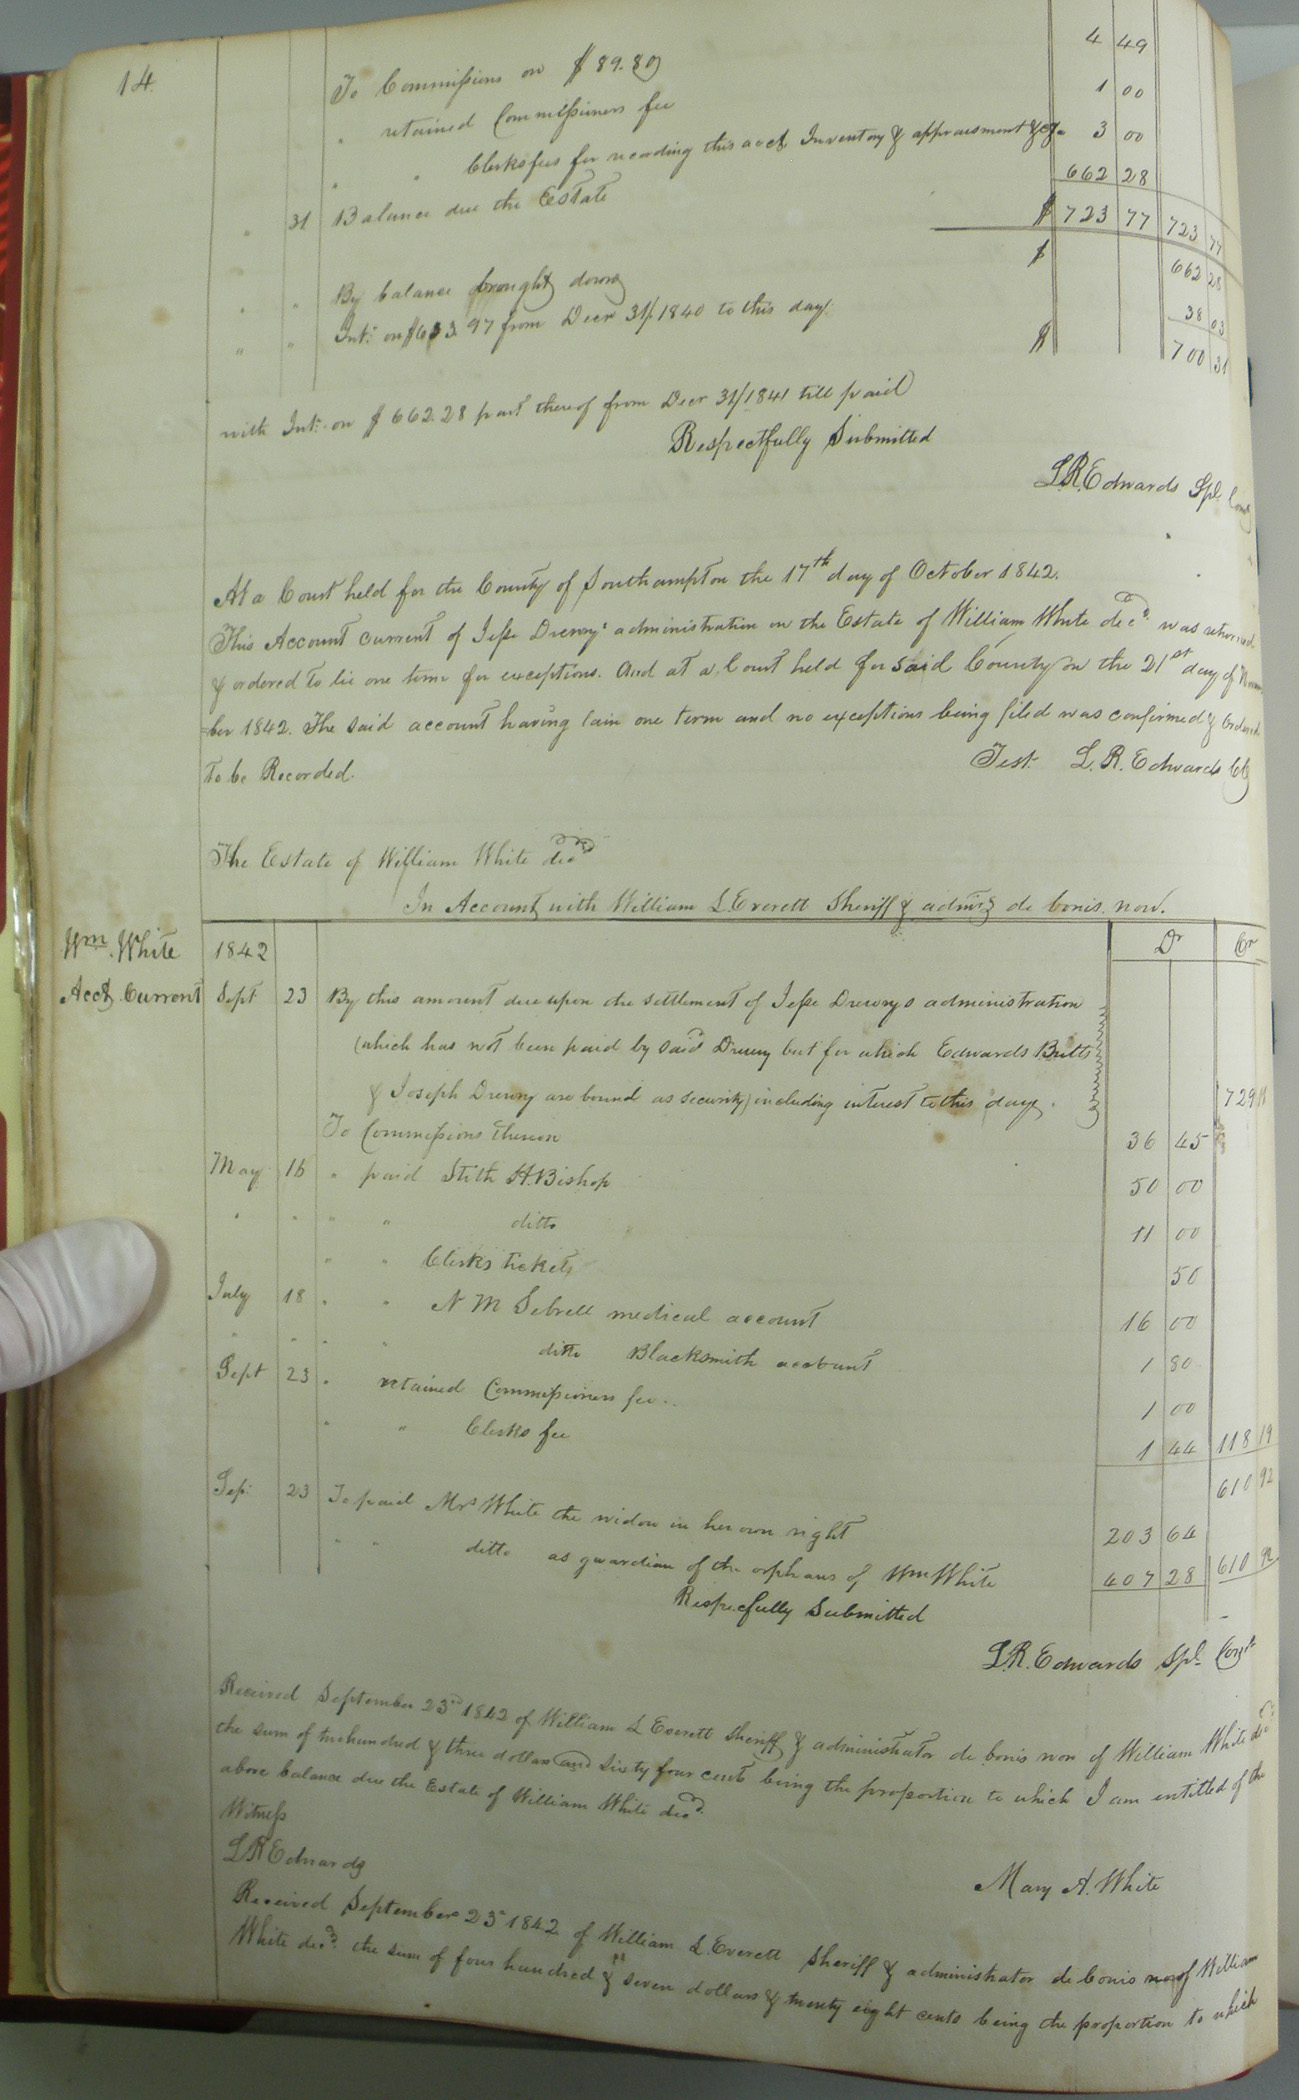 14.
To Commissions on $89.80 4 49
" retained Commissioners fee 1 00
" " Clerks fees for recording this acct, Inventory & appraisment &c. 3 00
" 31 Balance due the Estate 662 28
$ 723 77 723 77
" " By balance brought down $ 662 28
" " Int: on $633.97 from Decr 31/1840 to this day. 38 03
$ 700 31
with Int: on $662.28 part thereof from Decr 31/1841 till paid
Respectfully Submitted
L.R. Edwards Spl. Com
At a Court held for the County of Southampton the 17th day of October 1842.
This Account current of Jesse Drewry's administration on the Estate of William White decd. was returned
& ordered to lie one term for exceptions. And at a Court held for said County on the 21st day of Novem
=ber 1842. The said account having lain one term and no exceptions being filed was confirmed & Ordered
To be Recorded.
Test. L. R. Edwards CC
The Estate of William White decd
In Account with William L. Everett Sheriff & admr. de bonis non.
Wm. White 1842 Dr Cr
Acct. Current Sept 23 By this amount due upon the settlement of Jesse Drewrys administration
(which has not been paid by said Drewry but for which Edwards Butts
& Joseph Drewry are bound as security) including interest to this day. 729 11
To Commissions thereon 36 45
May 16 " paid Stith H. Bishop 50 00
" " " " ditto 11 00
" " Clerks tickets 50
July 18 " " N M Sebrell medical account 16 00
" " " " ditto Blacksmith account 1 80
Sept 23 " retained Commissioners fee. 1 00
" " Clerks fee 1 44 118 19
610 92
Sep: 23 To paid Mrs White the widow in her own right 203 64
" " ditto as guardian of the orphans of Wm White 407 28 610 92
Respecfully Submitted
L.R. Edwards Spl. Comr
Received September 23rd 1842 of William L Everett Sheriff & administrator de bonis non of William White decd
the sum of twohundred & three dollars and sixty four cents being the proportion to which I am entitled of the
above balance due the Estate of William White decd.
Witness
L R Edwards
Mary A. White
Received September 23d 1842 of William L. Everett Sheriff & administrator de bonis non of William
White decd. the sum of four hundred & seven dollars & twenty eight cents being the proportion to which